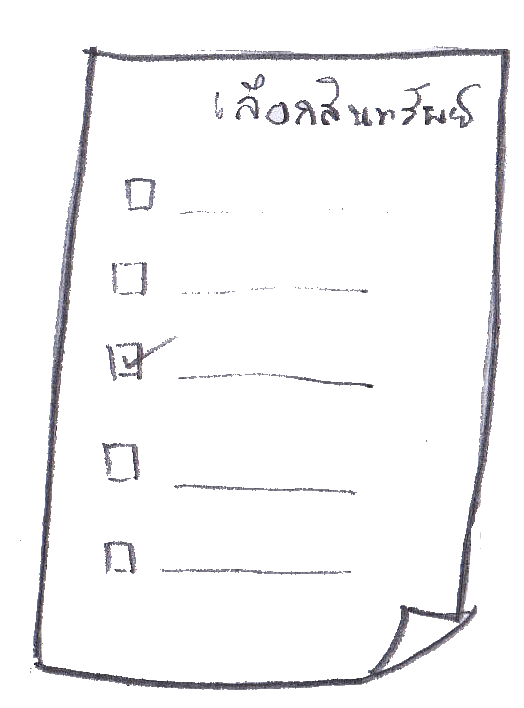 เลือกสินทรัพย์